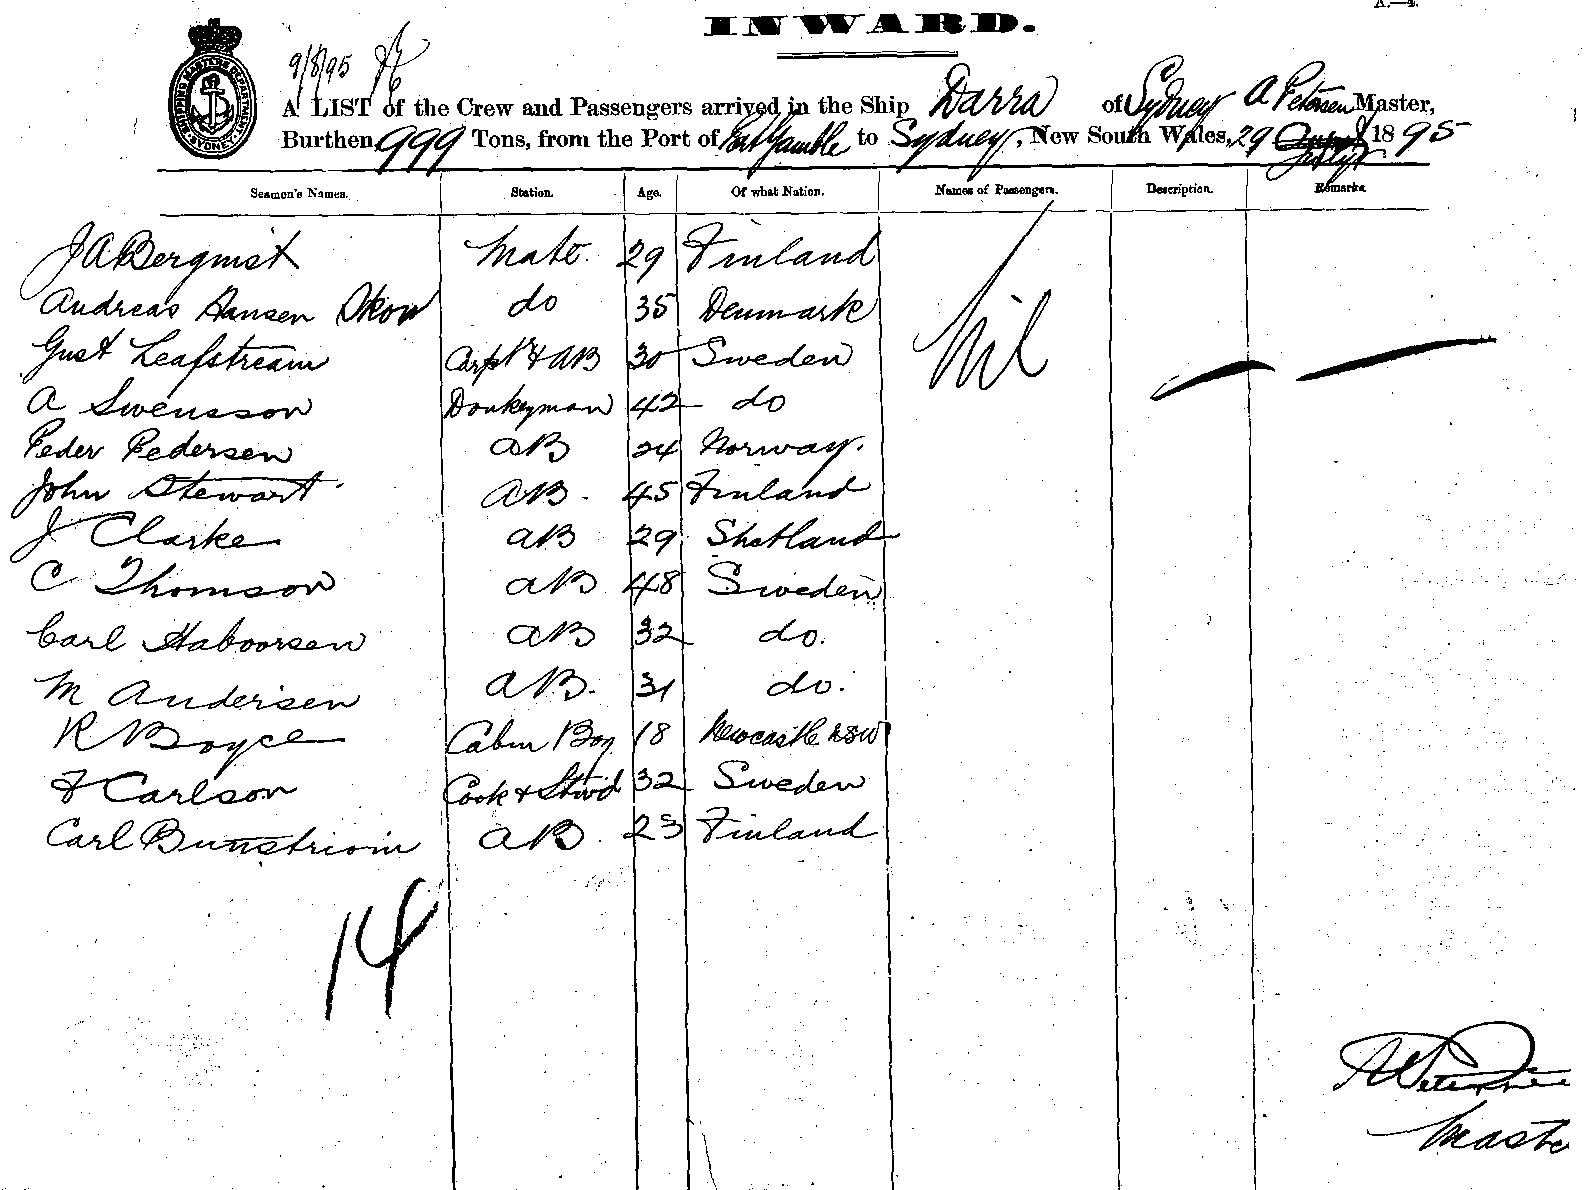 A.—4.
INWARD.
9/8/95
SHIPPING MASTERS DEPARTMENT SYDNEY
A LIST of the Crew and Passengers arrived in the Ship Darra of Sydney A Petersen Master,
Burthen 999 Tons, from the Port of Port Gamble to Sydney, New South Wales, 29 July 1895
Seamen's Names. Station. Age. Of what Nation. Names of Passengers. Description. Remarks.
J A Bergquist Mate. 29 Finland
Andreas Hansen Skow do 35 Denmark Nil
Gust Leafstream Carptr & AB 30 Sweden
A Swensson Donkeyman 42 do
Peder Pedersen AB 24 Norway.
John Stewart AB. 45 Finland
J Clarke AB 29 Shetland
C Thomson AB 48 Sweden
Carl Haboorsen AB 32 do.
M Andersen AB. 31 do.
R Boyce Cabin Boy 18 Newcastle NSW
F Carlson Cook & Stwd 32 Sweden
Carl AB 23 Finland
14
A Petersen
Master